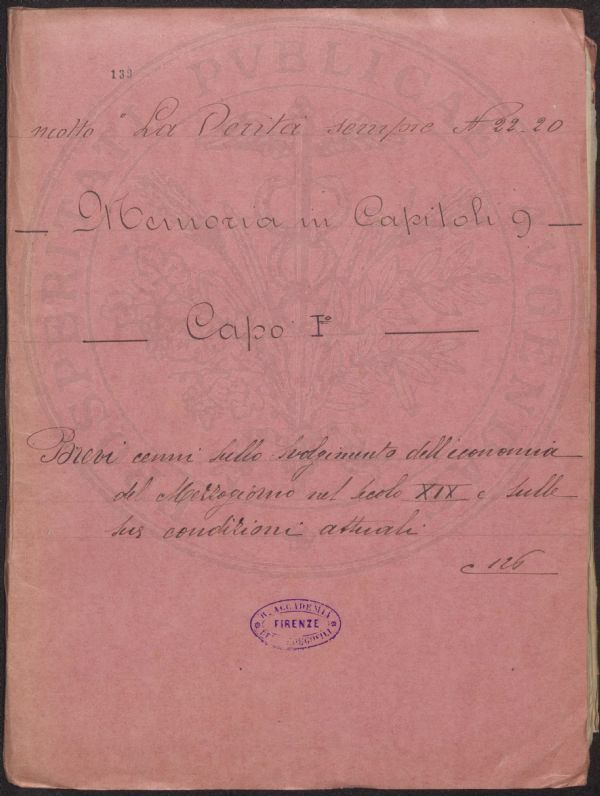 139
"La Verità sempre N 22.20
Memoria in Capitoli 9
Capo I°
Brevi cenni sullo svolgimento dell'economia
del Mezzogiorno nel secolo XIX e sulle
sue condizioni attuali
c 126
R. ACCADEMIA
FIRENZE
GEORGOFILI
PROSPERITATI PVBLICAE AVGENDAE